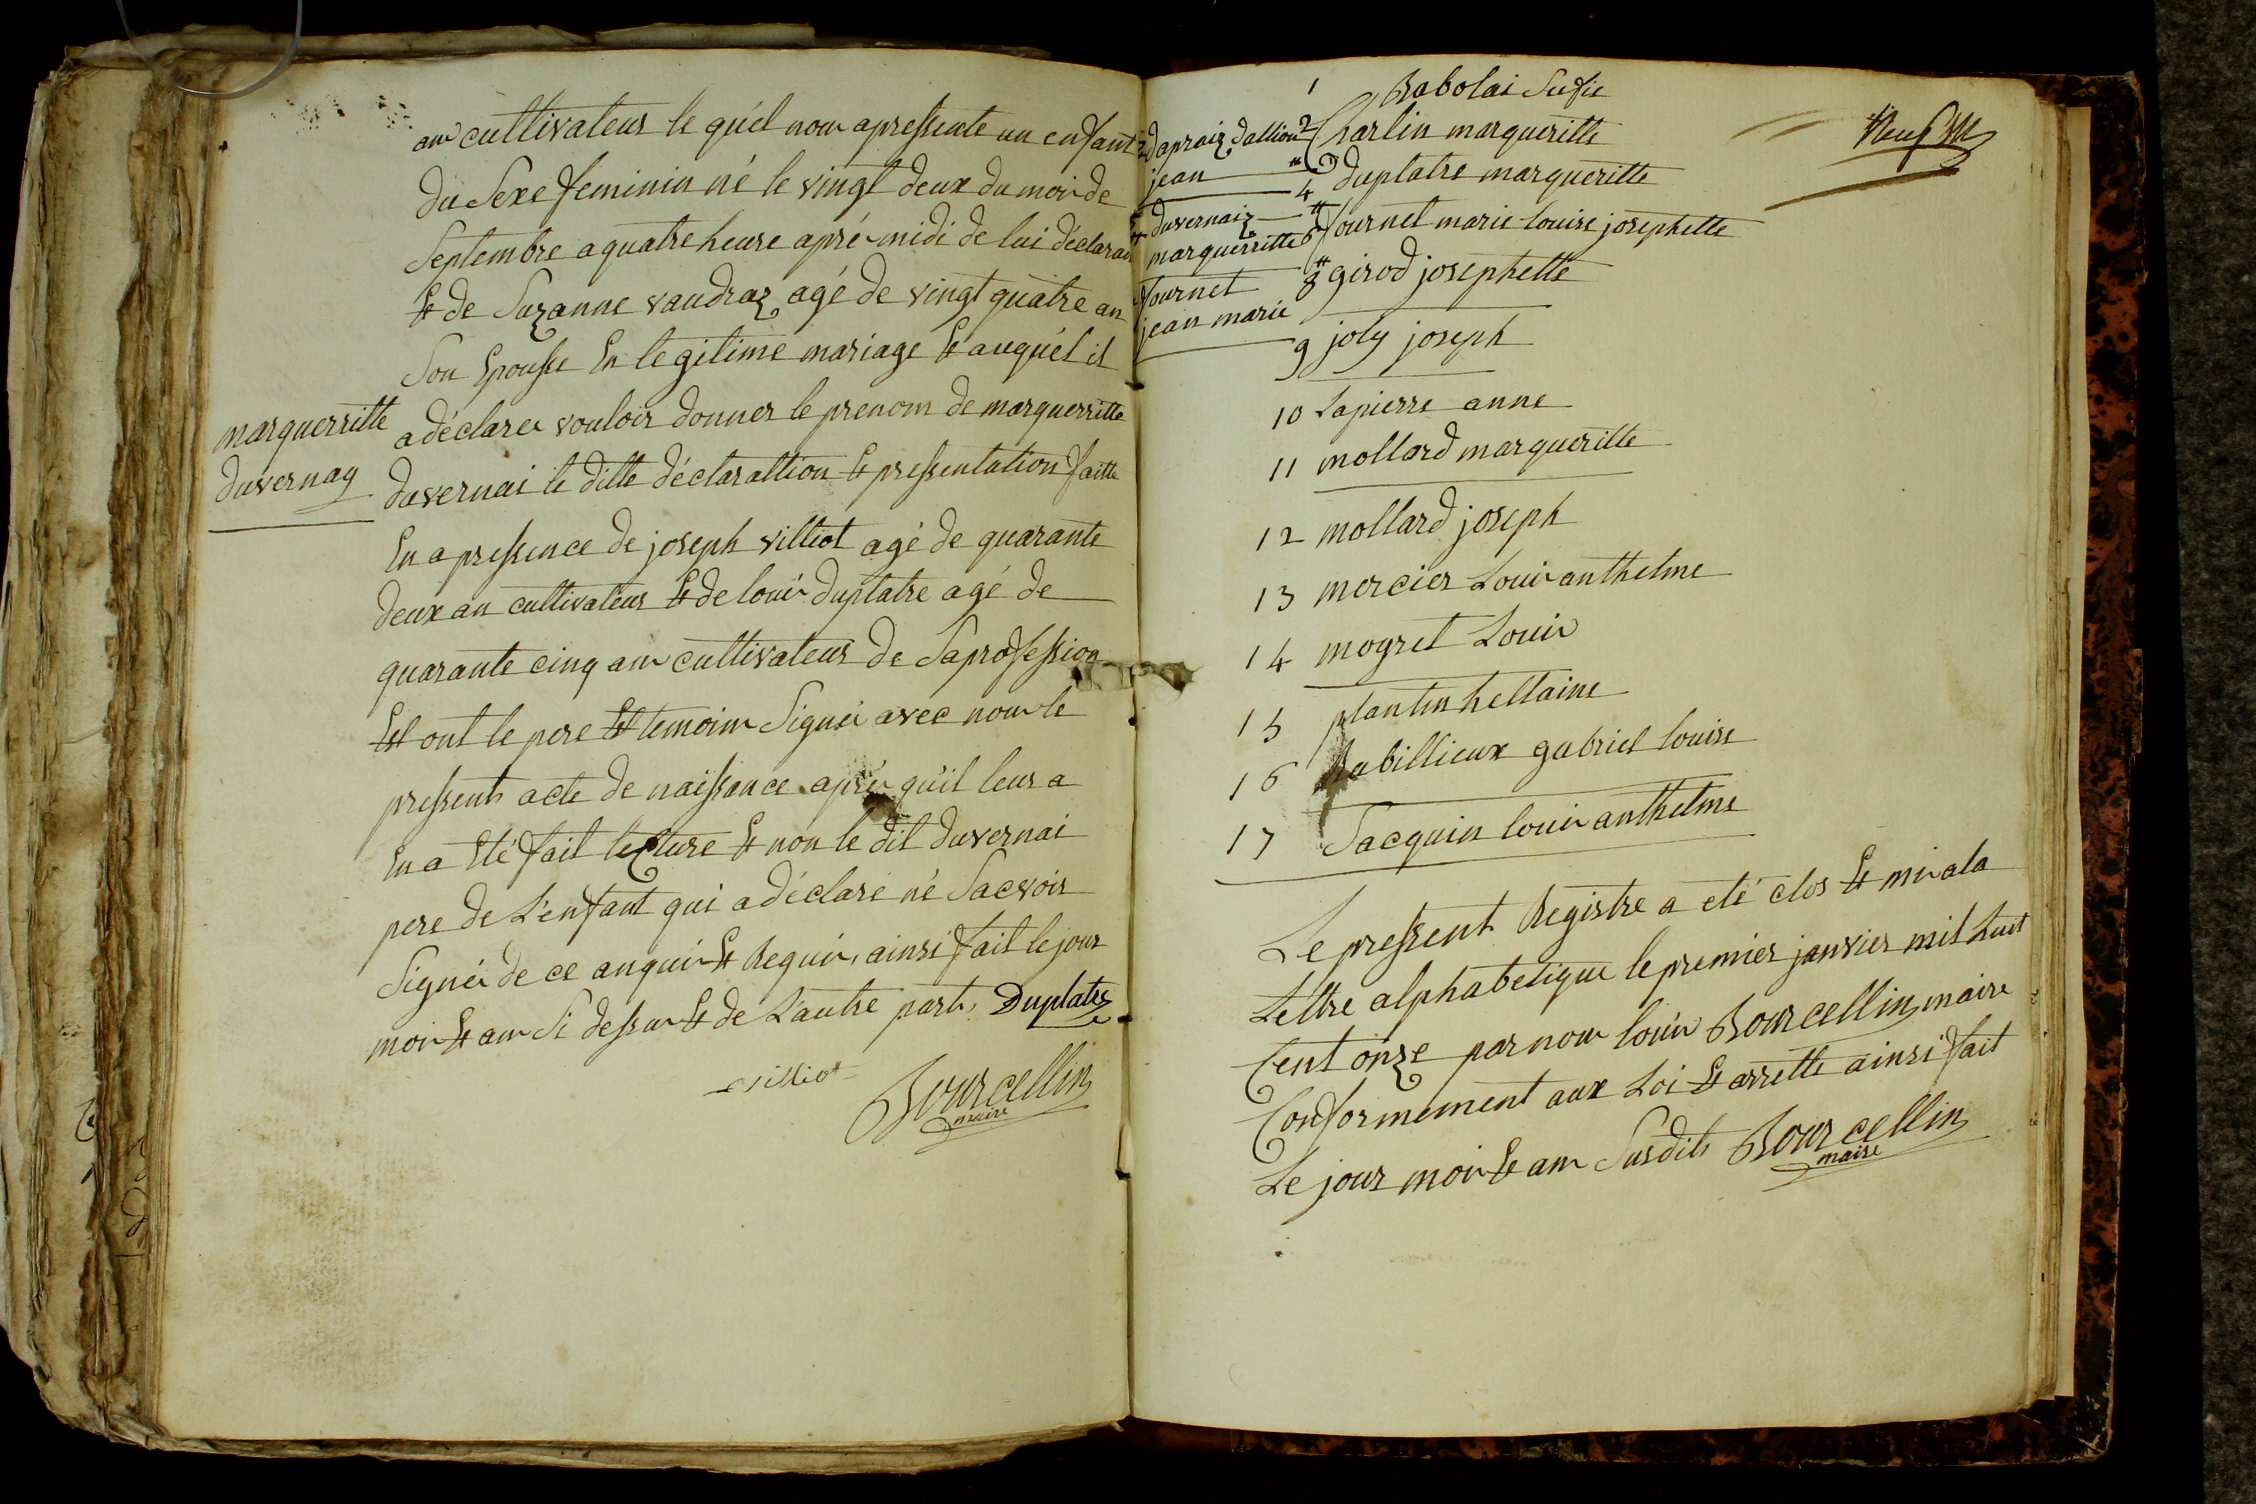 ans cultivateur le quél nous apressente un enfant
du Sexe feminin né le vingt deux du mois de
Septembre a quatre heure aprés midi de lui déclarant
Et de Suzanne vaudraz agé de vingt quatre an
Son Epousse En legitime mariage Et auquél il
a déclarer vouloir donner le prenom de marguerritte
marguerritte
duvernay
duvernai le ditte déclarattion Et pressentation faitte
En a pressence de joseph villiot agé de quarante
deux an cultivateur Et de louis duplatre agé de
quarante cinq ans cultivateur de Sa profession
Est ont le pere Et temoins Signér avec nous le
pressents acte de naissance aprés qu'il leur a
En a Eté fait lecture Et non le dit duvernai
pere de L'enfant qui a déclaré né Sacvoir
Signér de ce anquis Et Requis, ainsi fait le jour
mois Et ans Si dessus Et de L'autre part, Duplatre
villiot
Bourcellin
maire
neuf
1 Rabolai Sufie
2 Charlin margueritte
jean
4 duplatre margueritte
duvernaiz
marguerritte
6 fournet marie louise josephette
fournet
jean marie
8 girod josephette
9 joly joseph
10 Lapierre anne
11 mollard margueritte
12 mollard joseph
13 mercier Louis anthelme
14 mogret Louis
15 plantin hellaine
16 Rabillieux gabriel louise
17 Sacquin louis anthelme
Le pressent Registre a eté clos Et mis a la
Lettre alphabetique le premier janvier mil huit
Cent onze par nous louis Bourcellin maire
Conformement aux Loi Et arrette ainsi fait
Le jour mois Et ans Susdits Bourcellin
maire